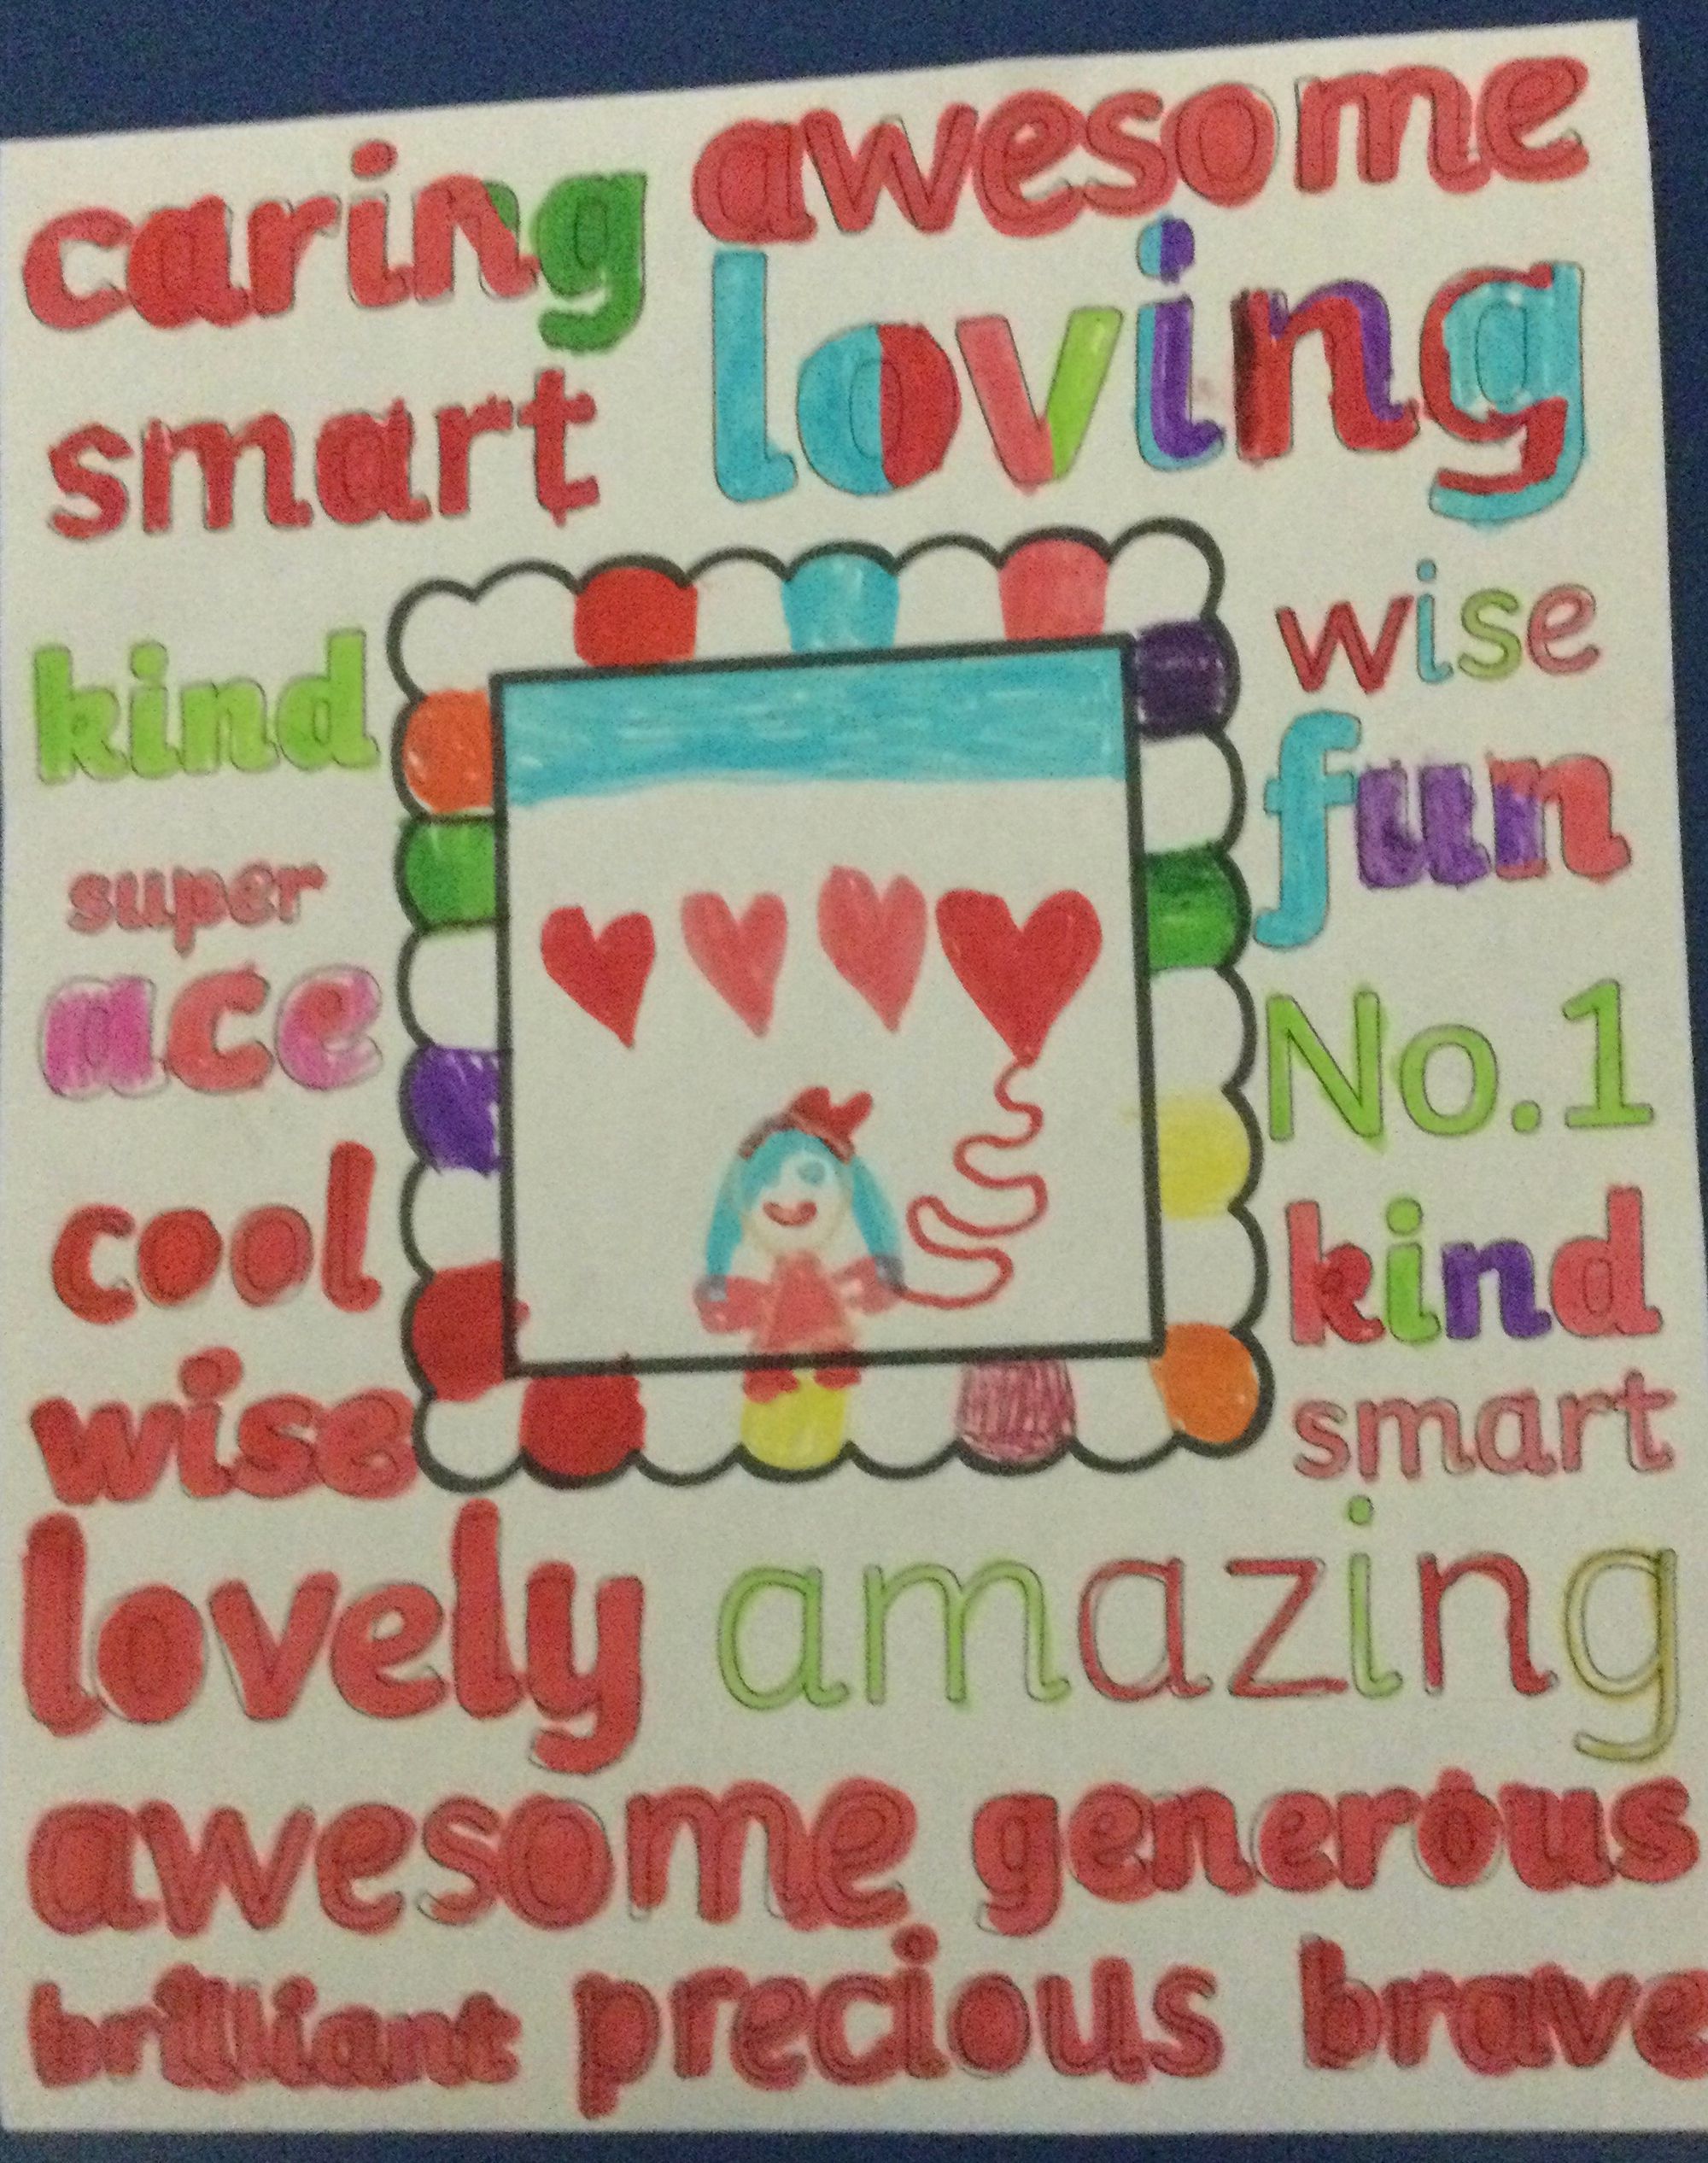 caring awesome
smart loving
kind wise
super fun
ace No.1
cool kind
wise smart
lovely amazing
awesome generous
brilliant precious brave